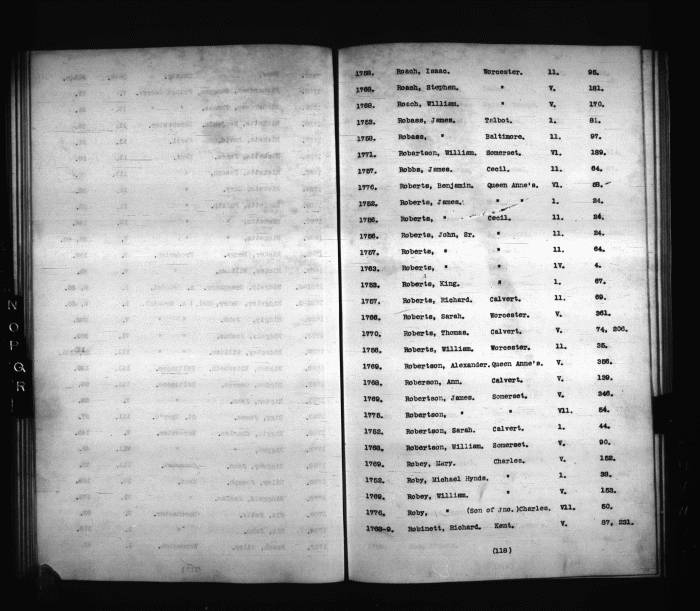 1758. Roach, Isaac. Worcester. 11. 95.
1768. Roach, Stephen. " V. 181.
1768. Roach, William. " V. 170.
1753. Robass, James. Talbot. 1. 81.
1758. Robass, " Baltimore. 11. 97.
1771. Robertson, William. Somerset. V1. 189.
1757. Robbs, James. Cecil. 11. 64.
1776. Roberts, Benjamin. Queen Anne's. V1. 58.
1752. Roberts, James. " " 1. 24.
1756. Roberts, " Cecil. 11. 24.
1756. Roberts, John, Sr. " 11. 24.
1757. Roberts, " " 11. 64.
1763. Roberts, " " 1V. 4.
1753. Roberts, King. " 1. 67.
1757. Roberts, Richard. Calvert. 11. 69.
1766. Roberts, Sarah. Worcester. V. 361.
1770. Roberts, Thomas. Calvert. V. 74, 206.
1756. Roberts, William. Worcester. 11. 35.
1769. Robertson, Alexander. Queen Anne's. V. 356.
1768. Roberson, Ann. Calvert. V. 139.
1769. Robertson, James. Somerset. V. 346.
1775. Robertson, " " V11. 54.
1752. Robertson, Sarah. Calvert. 1. 44.
1768. Robertson, William. Somerset. V. 90.
1769. Robey, Mary. Charles. V. 152.
1752. Roby, Michael Hynds. " 1. 38.
1769. Robey, William. " V. 153.
1776. Roby, " (Son of Jno.)Charles. V11. 50.
1768-9. Robinett, Richard. Kent. V. 37, 231.
(118)
N
O
P
Q
R